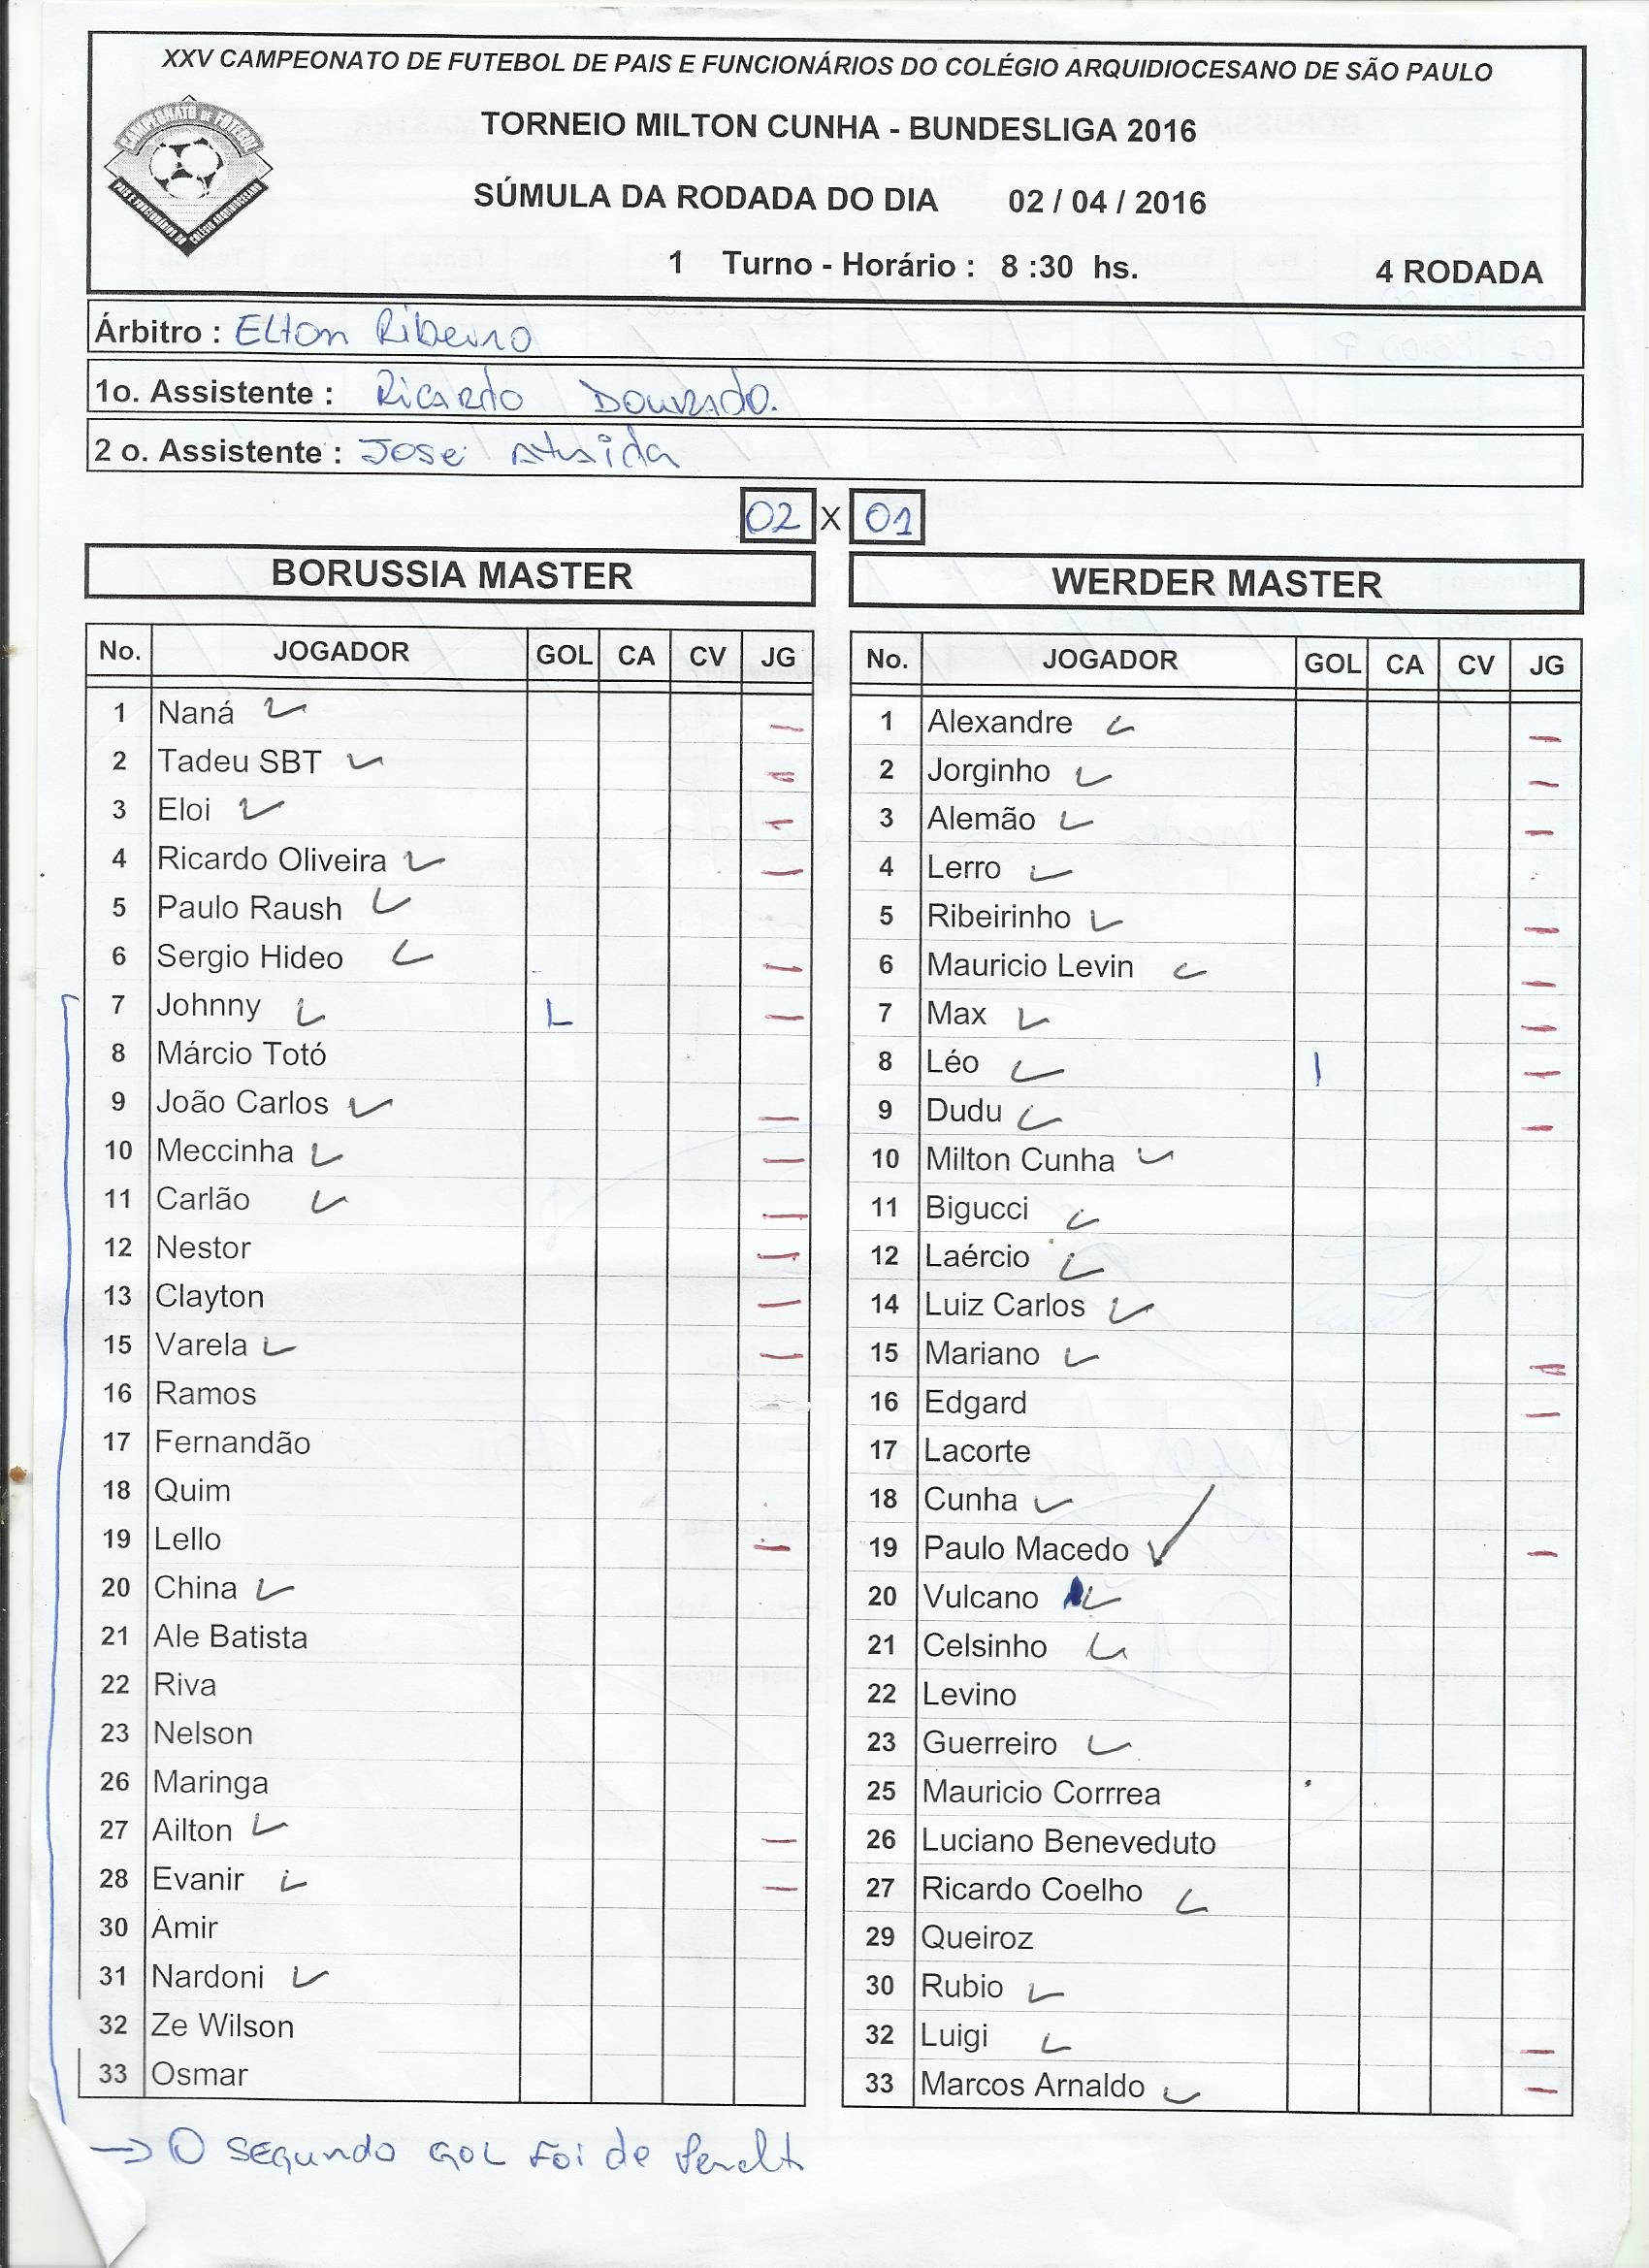 XXV CAMPEONATO DE FUTEBOL DE PAIS E FUNCIONÁRIOS DO COLÉGIO ARQUIDIOCESANO DE SÃO PAULO
CAMPEONATO DE FUTEBOL
PAIS E FUNCIONÁRIOS DO COLÉGIO ARQUIDIOCESANO
TORNEIO MILTON CUNHA - BUNDESLIGA 2016
SÚMULA DA RODADA DO DIA 02 / 04 / 2016
1 Turno - Horário : 8 :30 hs. 4 RODADA
Árbitro : Elton Ribeiro
1o. Assistente : Ricardo Dourado.
2 o. Assistente : Jose Ataida
02 X 01
BORUSSIA MASTER
No. JOGADOR GOL CA CV JG
1 Naná
2 Tadeu SBT
3 Eloi
4 Ricardo Oliveira
5 Paulo Raush
6 Sergio Hideo
7 Johnny L
8 Márcio Totó
9 João Carlos
10 Meccinha
11 Carlão
12 Nestor
13 Clayton
15 Varela
16 Ramos
17 Fernandão
18 Quim
19 Lello
20 China
21 Ale Batista
22 Riva
23 Nelson
26 Maringa
27 Ailton
28 Evanir
30 Amir
31 Nardoni
32 Ze Wilson
33 Osmar
WERDER MASTER
No. JOGADOR GOL CA CV JG
1 Alexandre
2 Jorginho
3 Alemão
4 Lerro
5 Ribeirinho
6 Mauricio Levin
7 Max
8 Léo I
9 Dudu
10 Milton Cunha
11 Bigucci
12 Laércio
14 Luiz Carlos
15 Mariano
16 Edgard
17 Lacorte
18 Cunha
19 Paulo Macedo
20 Vulcano
21 Celsinho
22 Levino
23 Guerreiro
25 Mauricio Corrrea
26 Luciano Beneveduto
27 Ricardo Coelho
29 Queiroz
30 Rubio
32 Luigi
33 Marcos Arnaldo
→ O segundo gol foi de Penalti